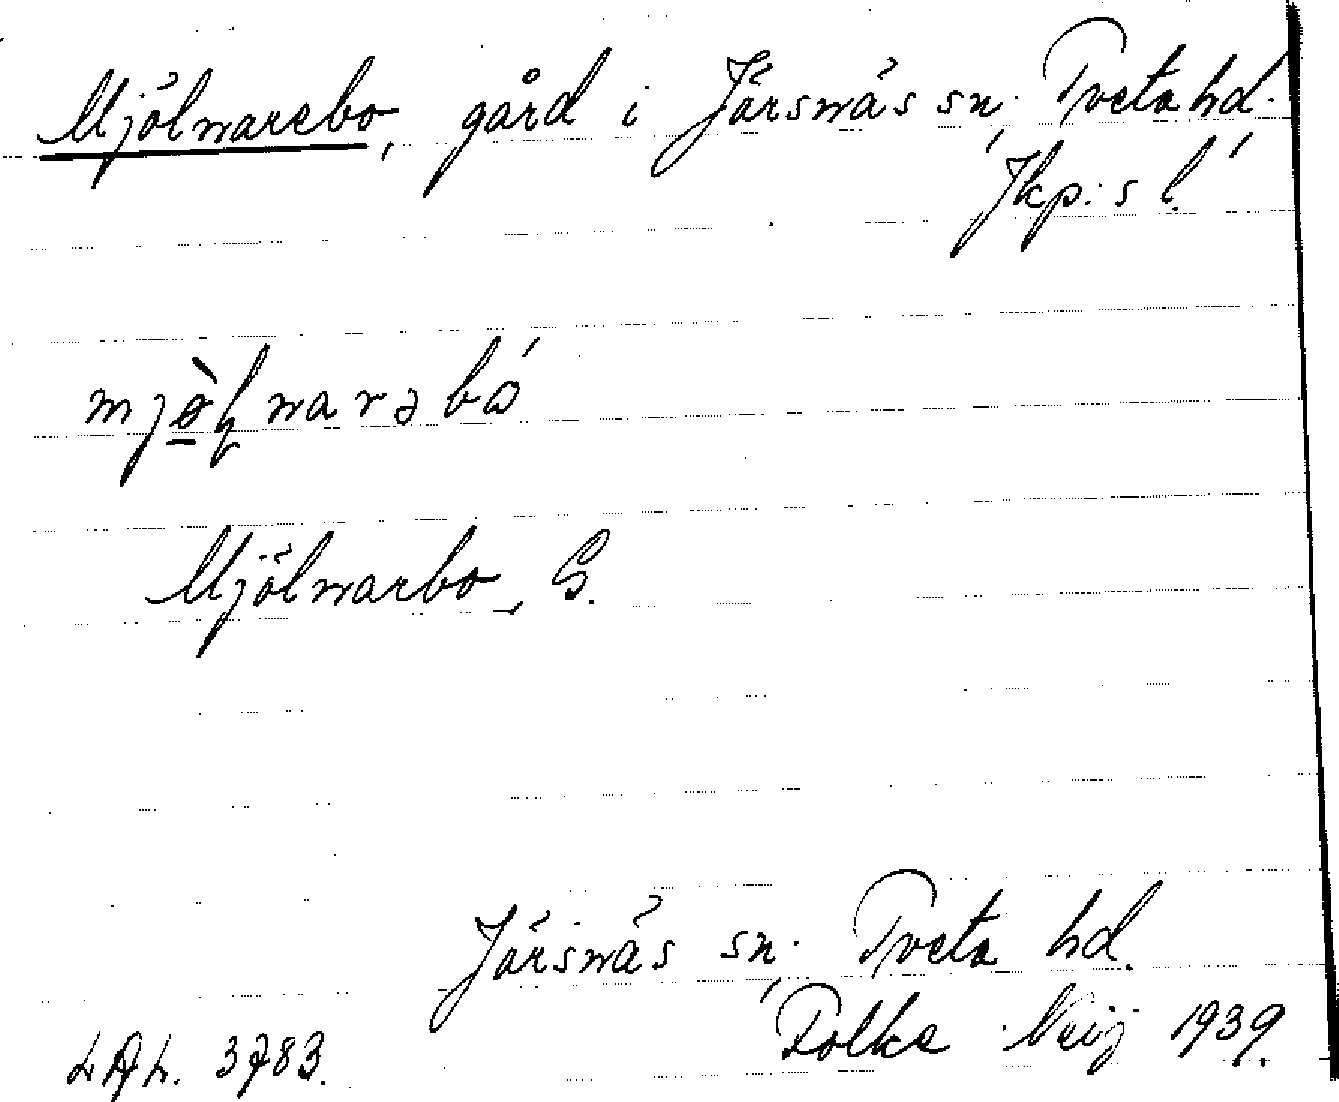 Mjölnarebo, gård i Järsnäs sn, Tveta hd.
Jkp:s l.
Mjölnarbo, G.
Järsnäs sn, Tveta hd.
Folke 1939.
3783.